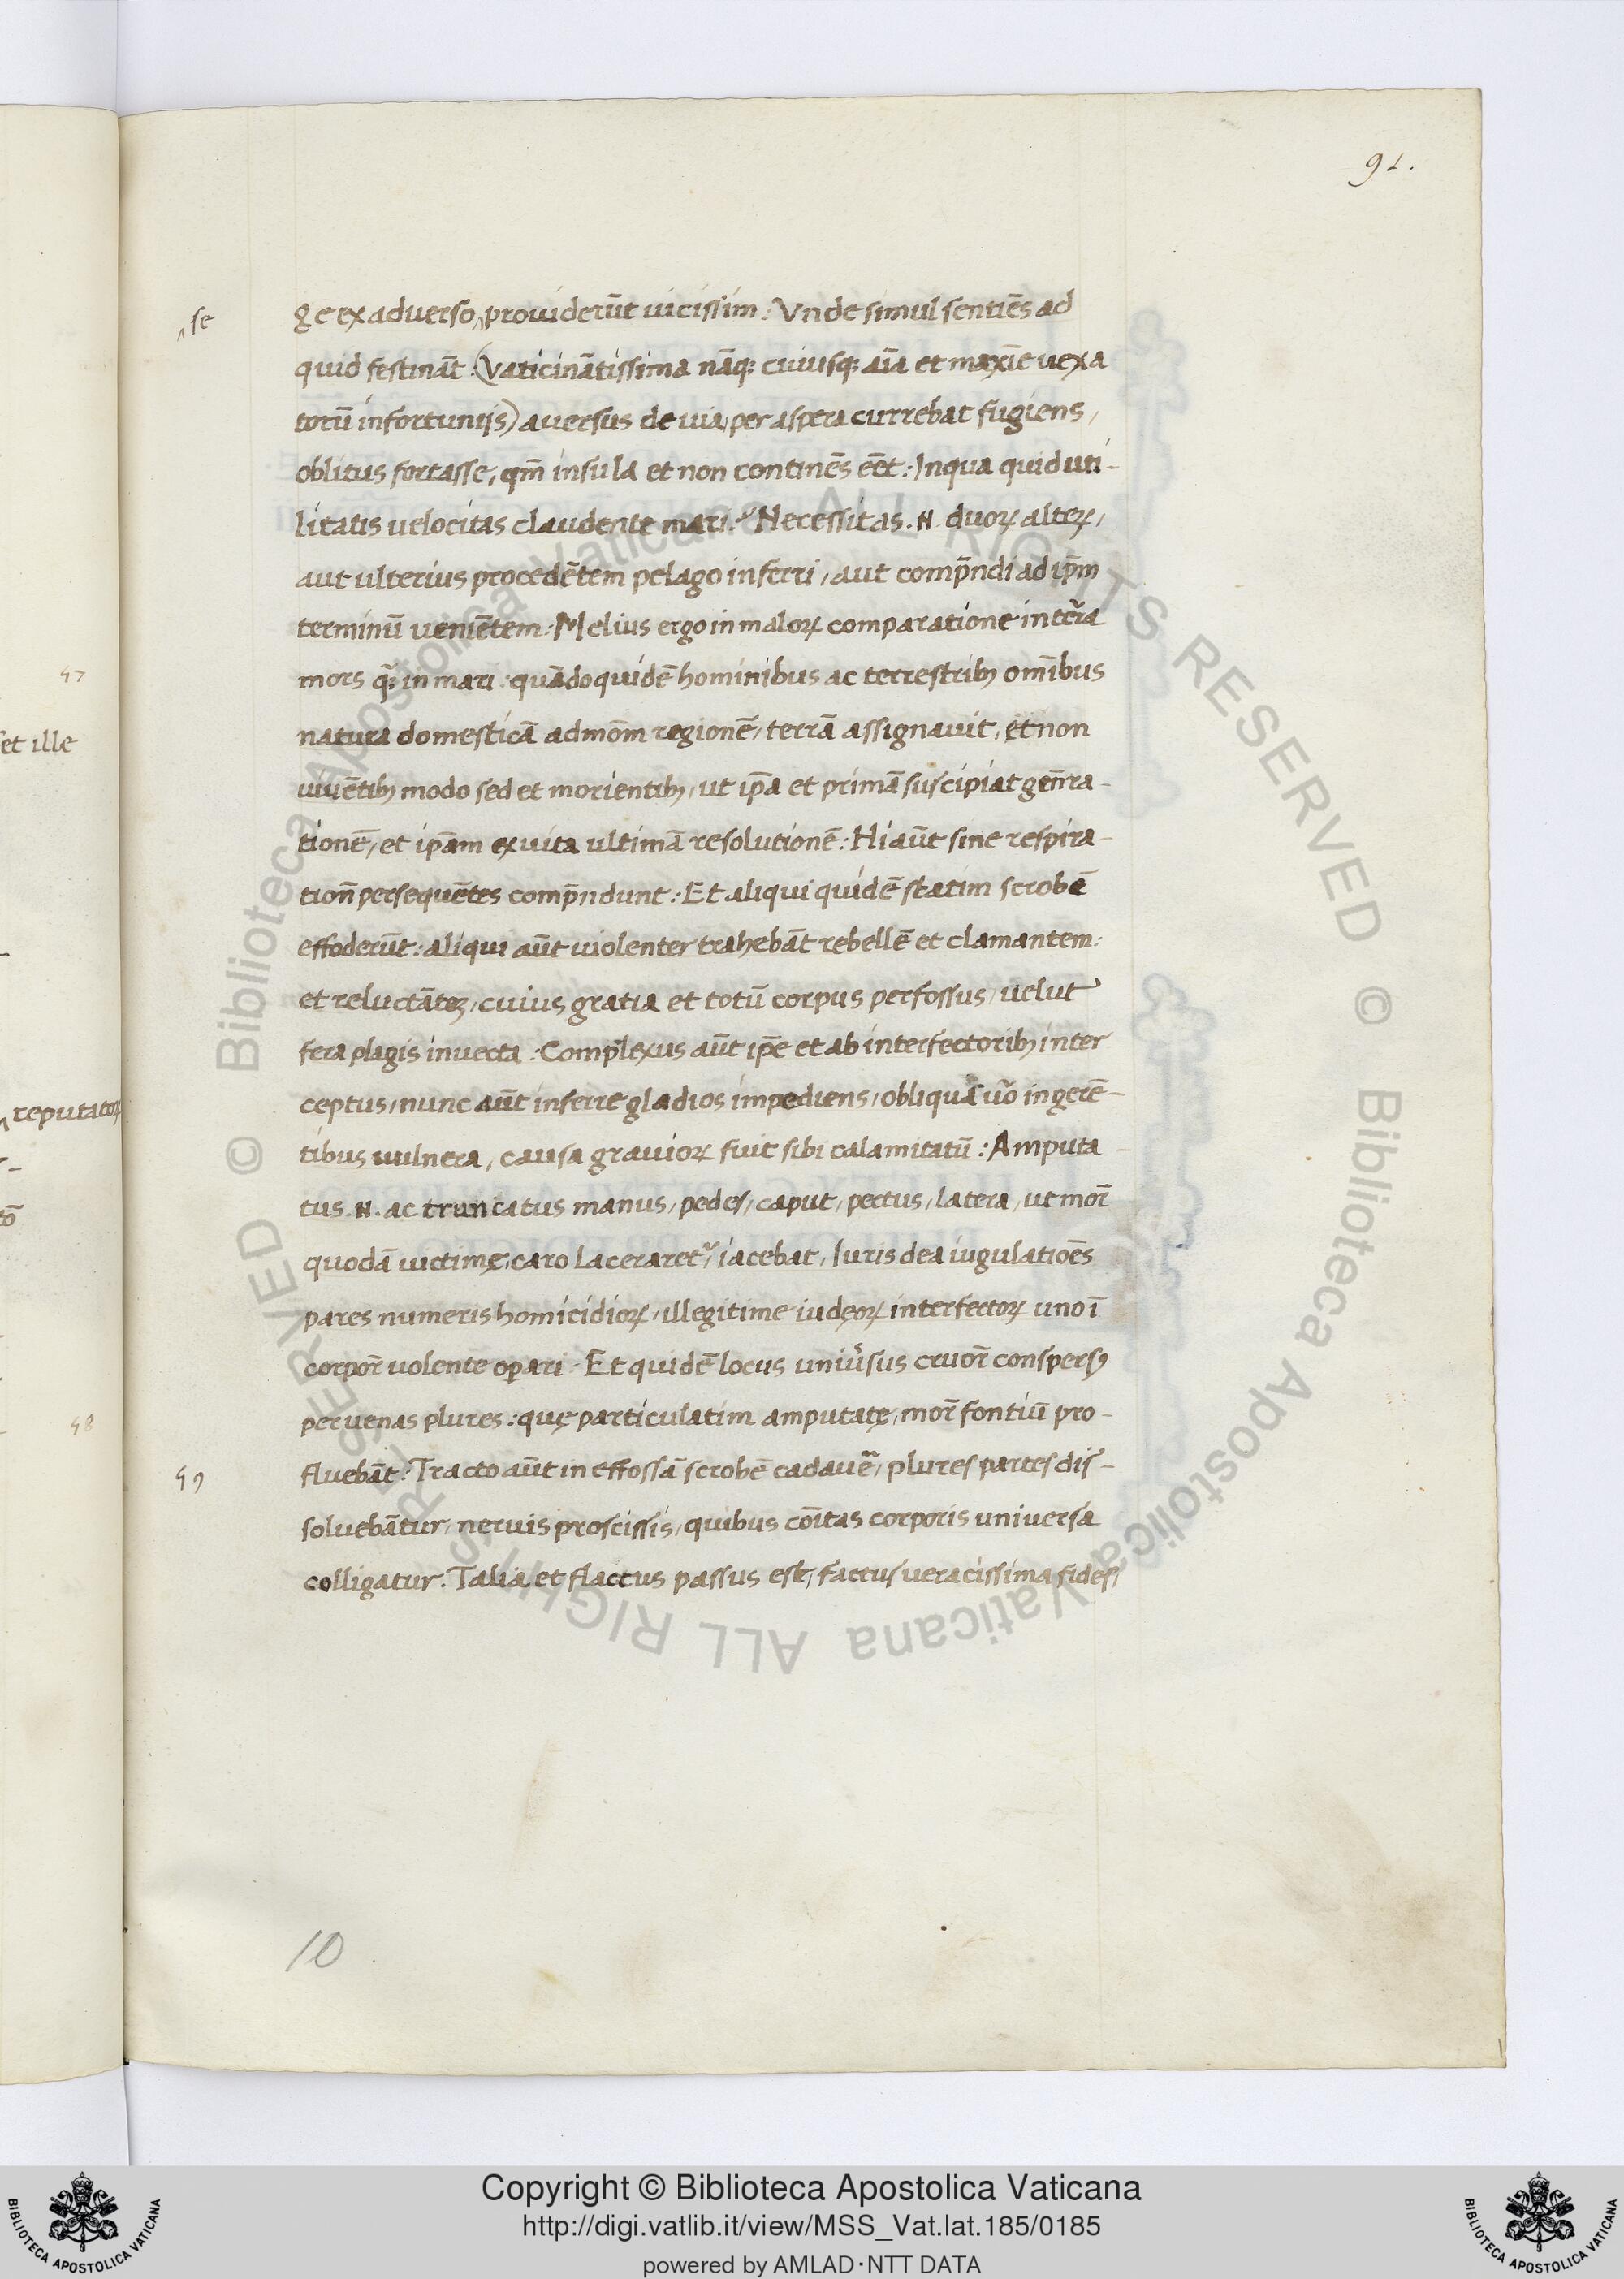 91.
se
ge ex adverso, providerūt vicissim: Vnde simul sentiēs ad
quid festinat: (vaticinātissima nāq; cuiusq; aīa et maxīe vexa
torū infortunijs) aversus de via, per aspera currebat fugiens,
oblitus fortasse, qm̄ insula et non continēs eēt: In qua quid uti-
litatis velocitas claudente mari? Necessitas .N. duoꝝ alteꝝ,
aut ulterius procedētem pelago inferri, aut comp̄ndi ad ip̄m
terminū veniētem. Melius ergo in maloꝝ comparatione in tr̄ra
mors q̄; in mari: quādoquidē hominibus ac terrestrib; om̄ibus
natura domesticā admōm regionē, terrā assignavit, et non
vivētib; modo sed et morientib;, ut ip̄a et primā suscipiat gen̄ra-
tionē, et ip̄am ex vita ultimā resolutionē: Hi aūt sine respira-
tion̄ persequētes comp̄ndunt: Et aliqui quidē statim scrobē
effoderūt: aliqui aūt violenter trahebāt rebellē et clamantem:
et reluctātē, cuius gratia et totū corpus perfossus, velut
fera plagis invecta: Complexus aūt ip̄e et ab interfectorib; inter
ceptus, nunc aūt inferre gladios impediens, obliqua v̄o ingerē-
tibus vulnera, causa gravioꝝ fuit sibi calamitatū: Amputa-
tus .N. ac truncatus manus, pedes, caput, pectus, latera, ut mor̄
quodā victimę, caro laceraret᷑, iacebat, Iuris dea iugulatiōes
pares numeris homicidioꝝ, illegitime iudęoꝝ interfectoꝝ uno ī
corpor̄ volente op̄ari. Et quidē locus univ̄sus cruor̄ conspersꝰ
per venas plures: quę particulatim amputatę, mor̄ fontiū pro-
fluebāt: Tracto aūt in effossā scrobē cadav̄e, plures partes dis-
solvebātur, nervis proscissis, quibus cōītas corporis universa
colligatur. Talia et flaccus passus est, factus veracissima fides,
47
et ille
reputatoꝝ
48
49
10
Copyright © Biblioteca Apostolica Vaticana
http://digi.vatlib.it/view/MSS_Vat.lat.185/0185
powered by AMLAD·NTT DATA
BIBLIOTECA APOSTOLICA VATICANA
BIBLIOTECA APOSTOLICA VATICANA
© Biblioteca Apostolica Vaticana ALL RIGHTS RESERVED © Biblioteca Apostolica Vaticana ALL RIGHTS RESERVED